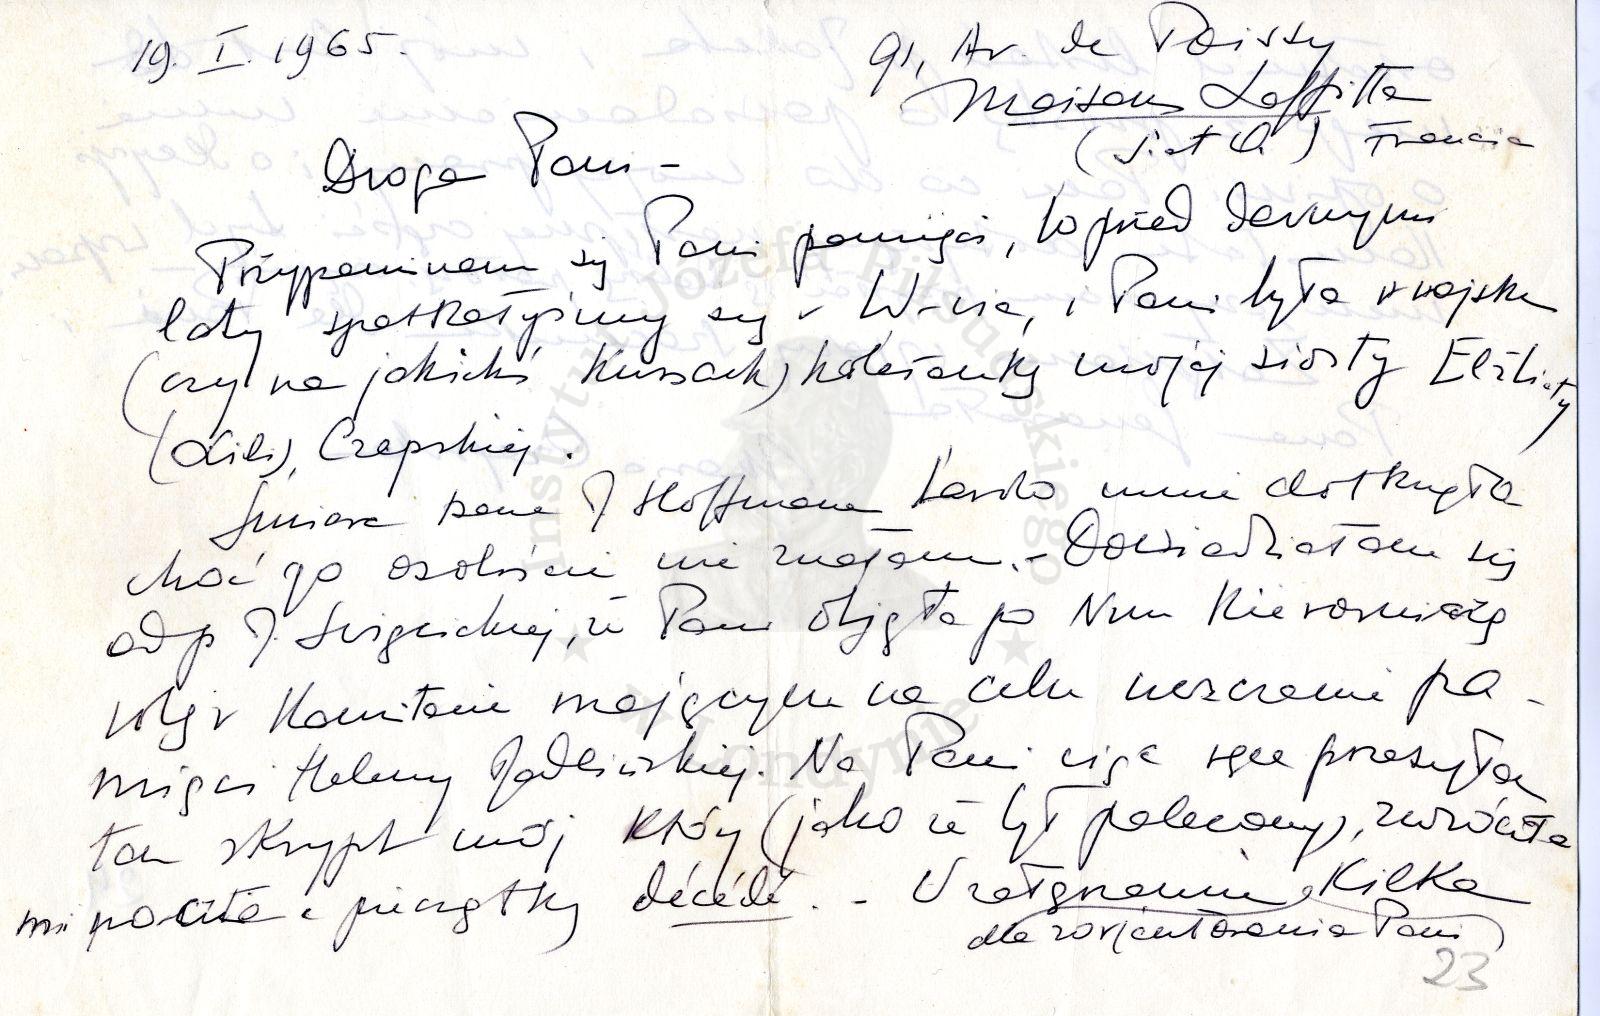 19. I. 1965.
91, Av. de Poissy
Maisons Laffitte
(S. et O.) Francja
Droga Pani –
Przypominam się Pani pamięci, bo przed dawnymi
laty spotkałyśmy się w W-wie, i Pani była w wojsku
(czy na jakichś kursach) koleżanką mojej siostry Elżbiety
(Lili), Czapskiej.
Śmierć pana J Hoffmana bardzo mnie dotknęła
choć go osobiście nie znałam. – Dowiedziałam się
od p J., że Pani objęła po Nim kierowniczą
rolę w Komitecie mającym na celu uczczenie pa-
mięci Heleny Radlińskiej. Na Pani więc ręce przesyłam
ten skrypt mój który (jako że był polecony), zwróciła
mi poczta z pieczątką décédé. – W załączeniu kilka
dla zorientowania Pani
23
Instytut Józefa Piłsudskiego
w Londynie